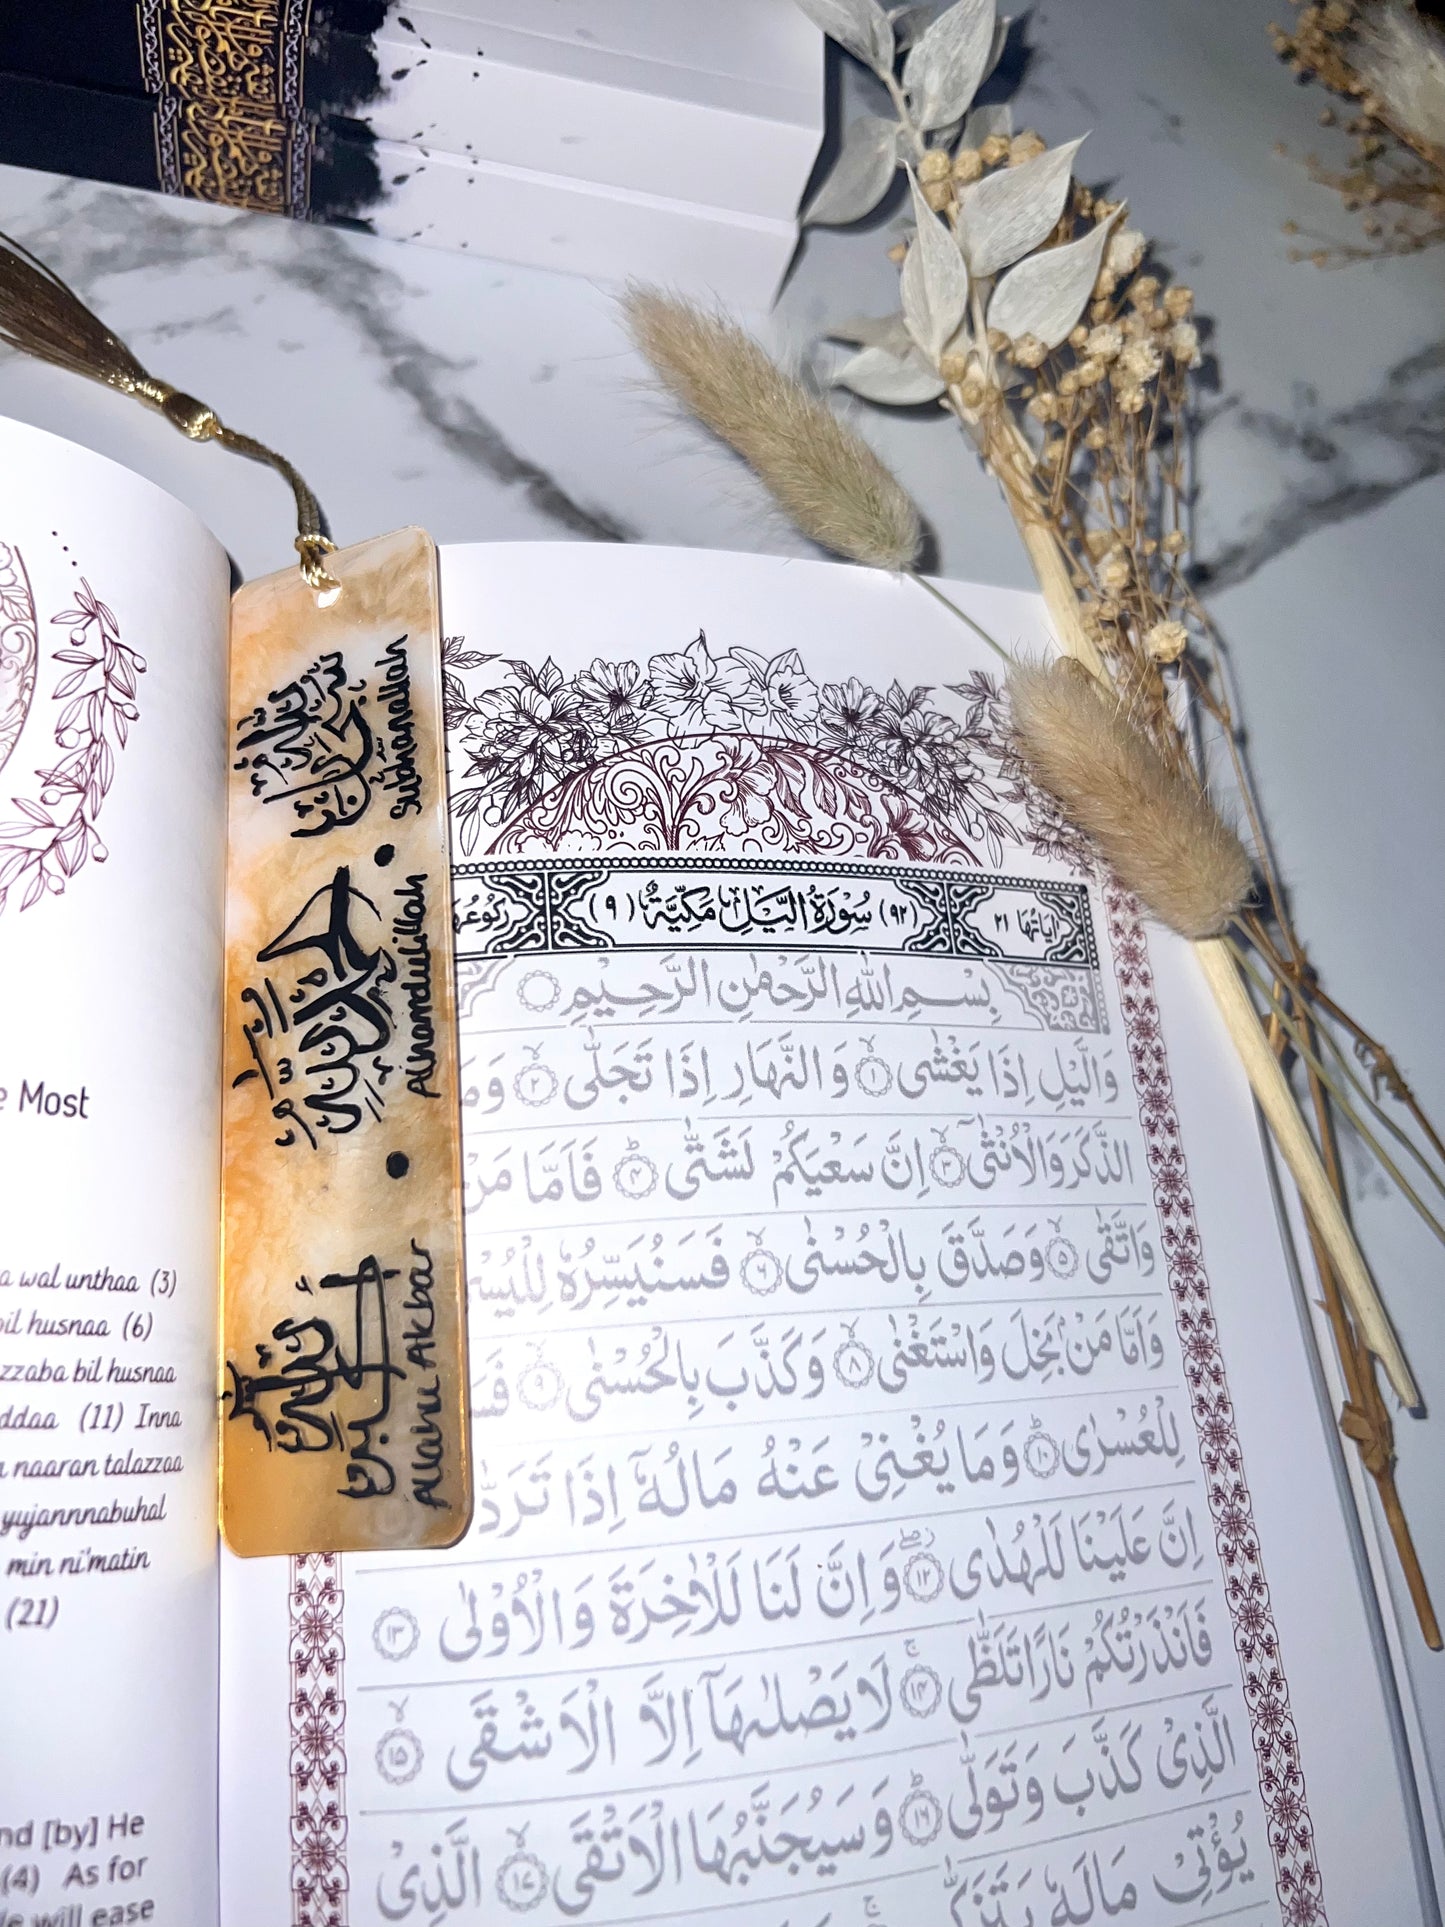 سبحان الله
Subhanallah
الحمد لله
Alhamdulillah
الله أكبر
Allahu Akbar
e Most
a wal unthaa (3)
bil husnaa (6)
zzaba bil husnaa
ddaa (11) Inna
naaran talazzaa
yujannnabuhal
min ni'matin
(21)
nd [by] He
(4) As for
will ease
اٰیَاتُهَا ٢١
(٩٢) سُوْرَةُ الَّیْلِ مَكِّیَّةٌ (٩)
رُكُوْعُهَا
بِسْمِ اللّٰهِ الرَّحْمٰنِ الرَّحِیْمِ
وَالَّیْلِ اِذَا یَغْشٰی ۙ﴿١﴾ وَالنَّهَارِ اِذَا تَجَلّٰی ۙ﴿٢﴾ وَمَا
الذَّكَرَ وَالْاُنْثٰۤی ۙ﴿٣﴾ اِنَّ سَعْیَكُمْ لَشَتّٰی ؕ﴿٤﴾ فَاَمَّا مَنْ
وَاتَّقٰی ۙ﴿٥﴾ وَصَدَّقَ بِالْحُسْنٰی ۙ﴿٦﴾ فَسَنُیَسِّرُهٗ لِلْیُسْ
وَاَمَّا مَنْۢ بَخِلَ وَاسْتَغْنٰی ۙ﴿٨﴾ وَكَذَّبَ بِالْحُسْنٰی ۙ﴿٩﴾ فَسَ
لِلْعُسْرٰی ؕ﴿١٠﴾ وَمَا یُغْنِیْ عَنْهُ مَالُهٗۤ اِذَا تَرَدّٰ
اِنَّ عَلَیْنَا لَلْهُدٰی ﴿١٢﴾ وَاِنَّ لَنَا لَلْاٰخِرَةَ وَالْاُوْلٰی ﴿١٣﴾
فَاَنْذَرْتُكُمْ نَارًا تَلَظّٰی ۚ﴿١٤﴾ لَا یَصْلٰىهَاۤ اِلَّا الْاَشْقَی ۙ﴿١٥﴾
الَّذِیْ كَذَّبَ وَتَوَلّٰی ؕ﴿١٦﴾ وَسَیُجَنَّبُهَا الْاَتْقَی ۙ﴿١٧﴾ الَّذِیْ
یُؤْتِیْ مَالَهٗ یَتَزَكّٰی